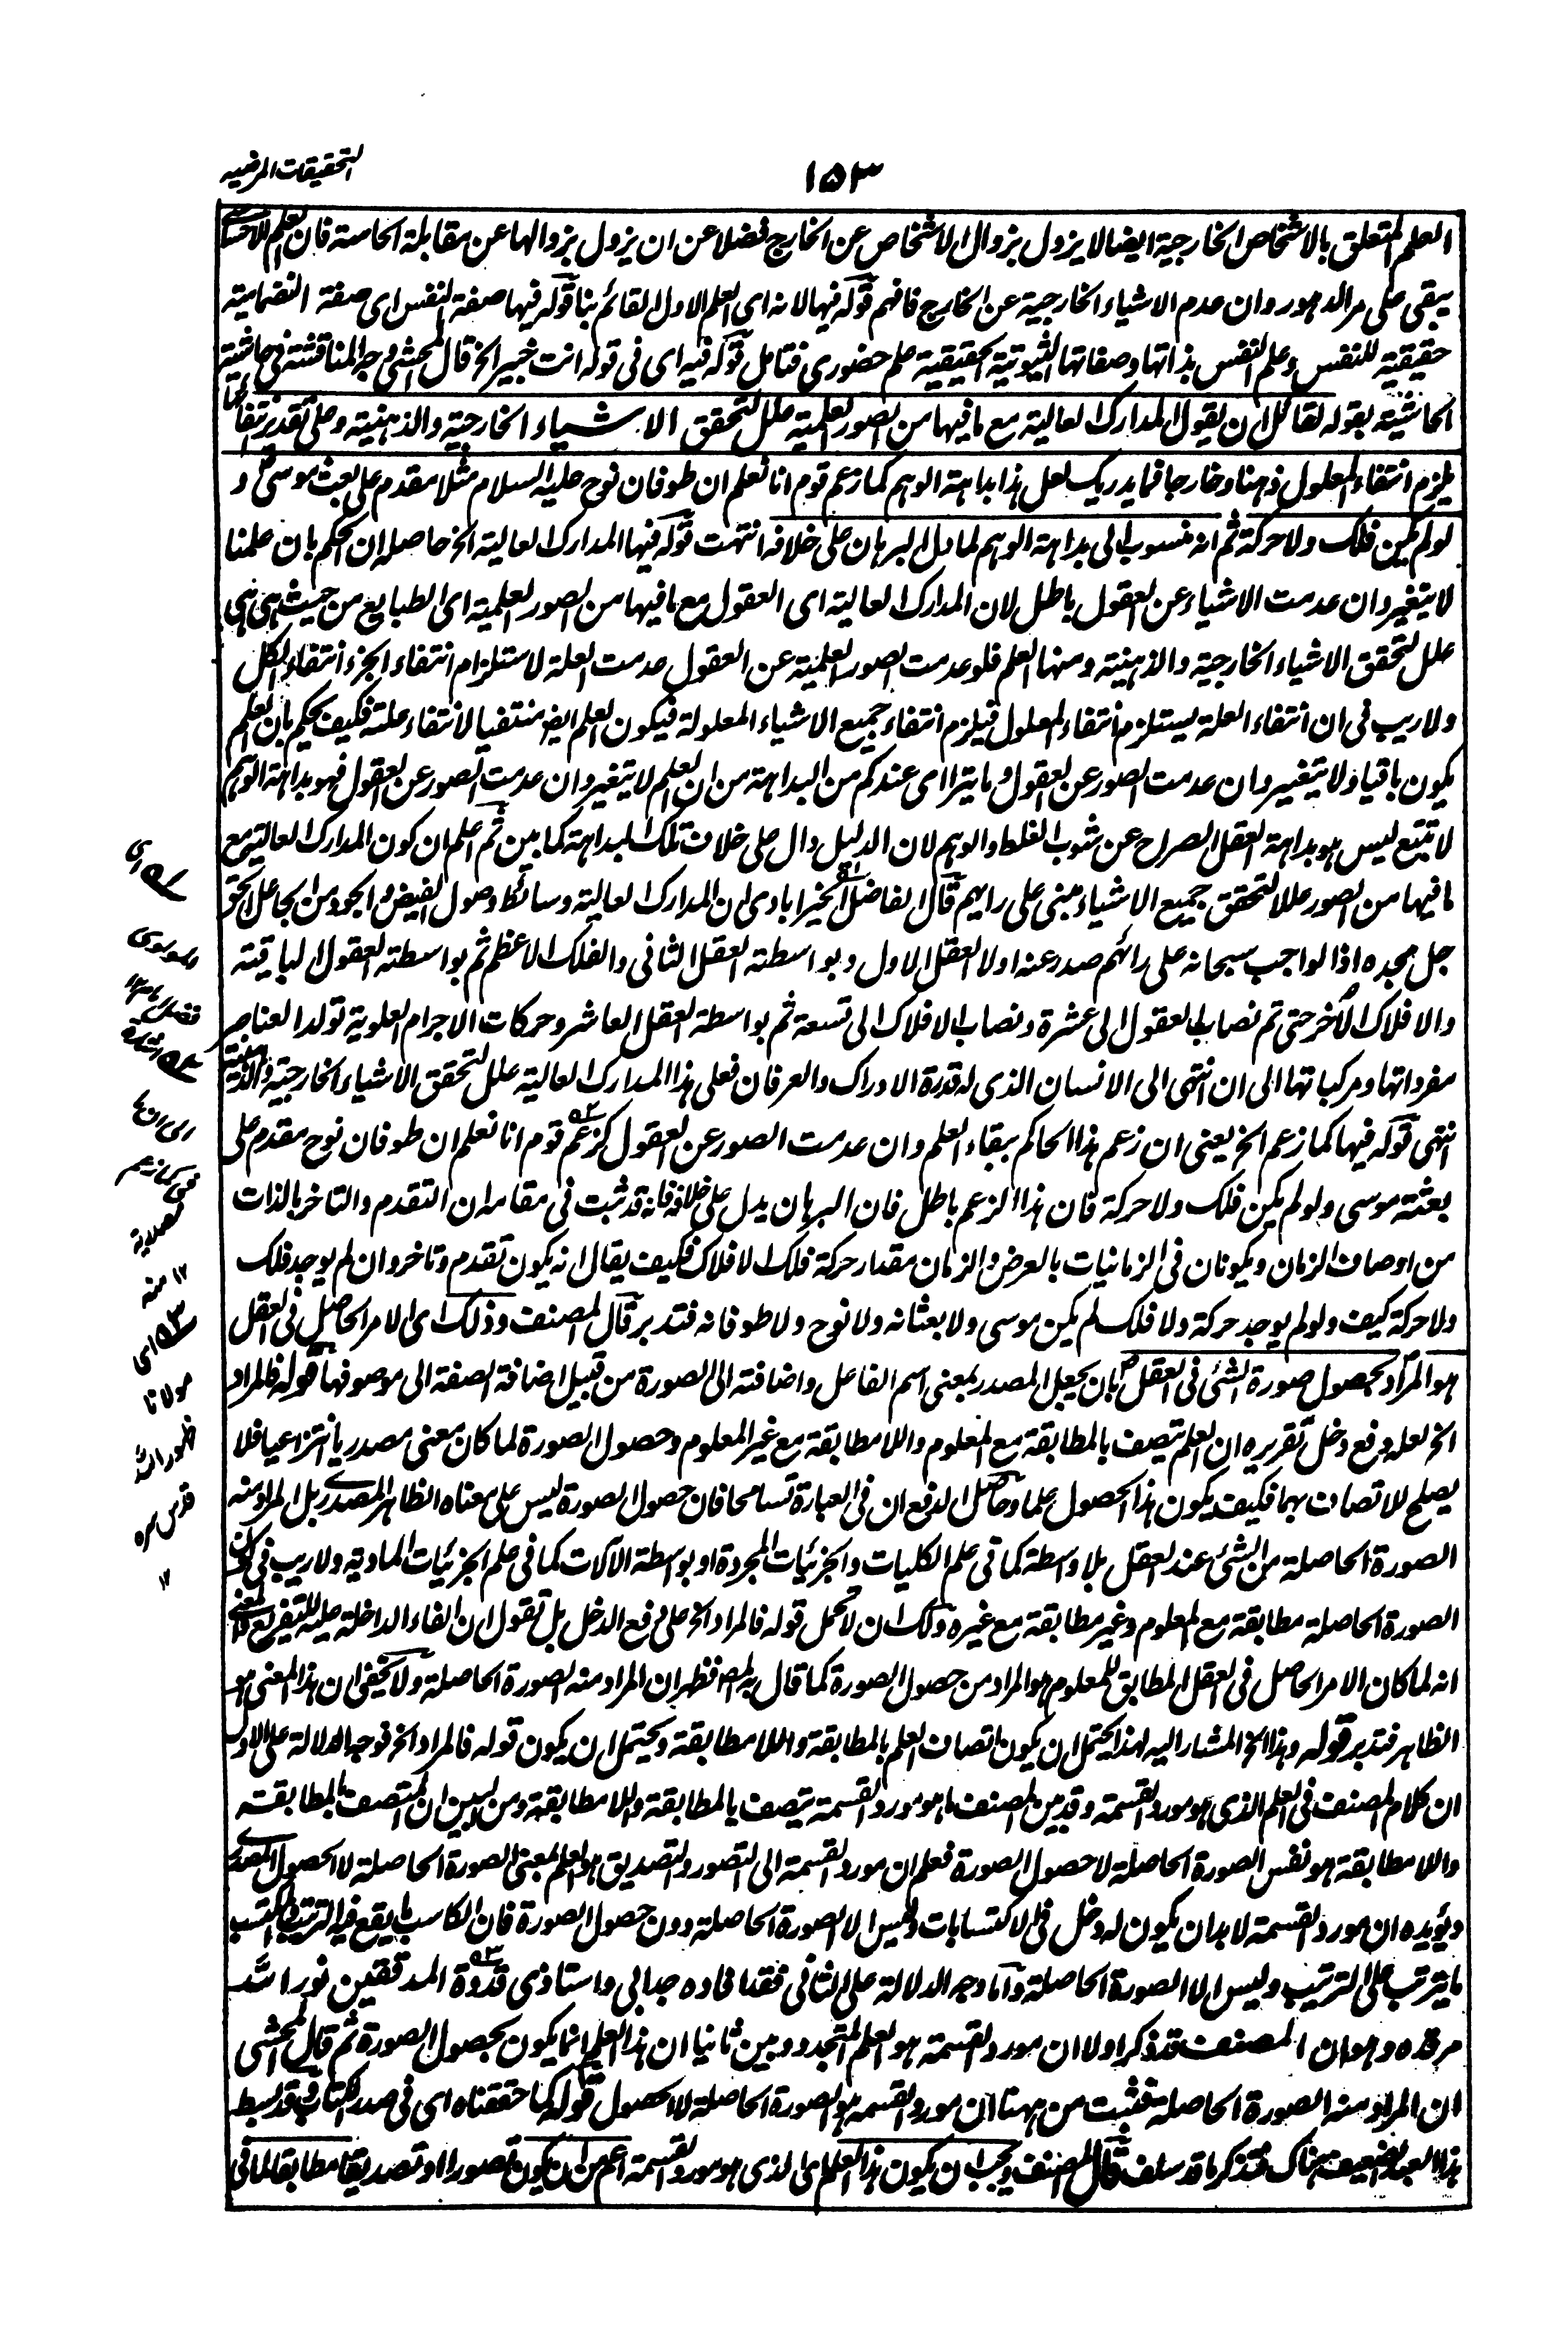 التحقيقات المرضية
١٥٣
العلم المتعلق بالاشخاص الخارجية ايضا لا يزول بزوال الاشخاص عن الخارج فضلا عن ان يزول بزوالها عن مقابلة الحاسة فان العلم الاحساسى
يبقى على مر الدهور وان عدم الاشياء الخارجية عن الخارج فافهم قوله فيها لانه اى العلم الاول القائم بنا قوله فيها صفة النفس اى صفة انضمامية
حقيقية للنفس وعلم النفس بذاتها وصفاتها الثبوتية الحقيقية علم حضورى فتامل قوله فيه اى فى قوله انت خبير الخ قال المحشى وجه المناقشة فى حاشية
الحاشية بقوله لقائل ان يقول المدارك العالية مع ما فيها من الصور العلمية علل لتحقق الاشياء الخارجية والذهنية وعلى تقدير انتفائها
يلزم انتفاء المعلول ذهنا وخارجا فما يدريك لعل هذا بداهة الوهم كما زعم قوم انا نعلم ان طوفان نوح عليه السلام مثلا مقدم على بعث موسى و
لو لم يكن فلك ولا حركة ثم انه منسوب الى بداهة الوهم لما دل البرهان على خلافه انتهت قوله فيها المدارك العالية الخ حاصله ان الحكم بان علمنا
لا يتغير وان عدمت الاشياء عن العقول باطل لان المدارك العالية اى العقول مع ما فيها من الصور العلمية اى الطبايع من حيث هى هى
علل لتحقق الاشياء الخارجية والذهنية ومنها العلم فلو عدمت الصور العلمية عن العقول عدمت العلة لاستلزام انتفاء الجزء انتفاء الكل
ولا ريب فى ان انتفاء العلة يستلزم انتفاء المعلول فيلزم انتفاء جميع الاشياء المعلولة فيكون العلم ايضا منتفيا لانتفاء علته فكيف يحكم بان العلم
يكون باقيا ولا يتغير وان عدمت الصور عن العقول وما يتراأى عندكم من البداهة من ان العلم لا يتغير وان عدمت الصور عن العقول فهو بداهة الوهم
لا تتبع ليس هو بداهة العقل الصراح عن شوب الغلط والوهم لان الدليل دال على خلاف تلك البداهة كما بين ثم اعلم ان كون المدارك العالية مع
ما فيها من الصور عللا لتحقق جميع الاشياء مبنى على رايهم قال الفاضل الخيرابادى ان المدارك العالية وسائط وصول الفيض والجود من الجاعل الحق
جل مجده اذ الواجب سبحانه على رائهم صدر عنه اولا العقل الاول وبواسطته العقل الثانى والفلك الاعظم ثم بواسطته العقول الباقية
والافلاك الأخر حتى تم نصاب العقول الى عشرة ونصاب الافلاك الى تسعة ثم بواسطة العقل العاشر وحركات الاجرام العلوية تولد العناصر
مفرداتها ومركباتها الى ان انتهى الى الانسان الذى له قدرة الادراك والعرفان فعلى هذا المدارك العالية علل لتحقق الاشياء الخارجية والذهنية
انتهى قوله فيها كما زعم الخ يعنى ان زعم هذا الحاكم ببقاء العلم وان عدمت الصور عن العقول كزعم قوم انا نعلم ان طوفان نوح مقدم على
بعثة موسى ولو لم يكن فلك ولا حركة فان هذا الزعم باطل فان البرهان يدل على خلافه فانه قد ثبت فى مقامه ان التقدم والتاخر بالذات
من اوصاف الزمان ويكونان فى الزمانيات بالعرض والزمان مقدار حركة فلك الافلاك فكيف يقال انه يكون تقدم وتاخر وان لم يوجد فلك
ولا حركة كيف ولو لم يوجد حركة ولا فلك لم يكن موسى ولا بعثانه ولا نوح ولا طوفانه فتدبر قال المصنف وذلك اى الامر الحاصل فى العقل
هو المراد بحصول صورة الشئ فى العقل بان يجعل المصدر بمعنى اسم الفاعل واضافته الى الصورة من قبيل اضافة الصفة الى موصوفها قوله فالمراد
الخ لعله دفع دخل تقريره ان العلم يتصف بالمطابقة مع المعلوم واللامطابقة مع غير المعلوم وحصول الصورة لما كان معنى مصدريا انتزاعيا فلا
يصلح للاتصاف بهما فكيف يكون هذا الحصول علما وحاصل الدفع ان فى العبارة تسامحا فان حصول الصورة ليس على معناه الظاهر المصدرى بل المراد منه
الصورة الحاصلة من الشئ عند العقل بلا واسطة كما فى علم الكليات والجزئيات المجردة او بواسطة الآلات كما فى علم الجزئيات المادية ولا ريب فى كون
الصورة الحاصلة مطابقة مع المعلوم وغير مطابقة مع غيره ولك ان لا تحمل قوله فالمراد الخ على دفع الدخل بل تقول ان الفاء الداخلة عليه للتفريع والمعنى
انه لما كان الامر الحاصل فى العقل المطابق للمعلوم هو المراد من حصول الصورة كما قال به المص فظهر ان المراد منه الصورة الحاصلة ولا يخفى ان هذا المعنى هو
الظاهر فتدبر قوله وهذا الخ المشار اليه لهذا يحتمل ان يكون اتصاف العلم بالمطابقة واللامطابقة ويحتمل ان يكون قوله فالمراد الخ فوجه الدلالة على الاول
ان كلام المصنف فى العلم الذى هو مورد القسمة وقد بين المصنف ما هو مورد القسمة يتصف بالمطابقة واللامطابقة ومن البين ان المتصف بالمطابقة
واللامطابقة هو نفس الصورة الحاصلة لا حصول الصورة فعلم ان مورد القسمة الى التصور والتصديق هو العلم بمعنى الصورة الحاصلة لا الحصول المصدرى
ويؤيده ان مورد القسمة لا بد ان يكون له دخل فى الاكتسابات وليس الا الصورة الحاصلة دون حصول الصورة فان الكاسب ما يقع فيه الترتيب والمكتسب
ما يترتب على الترتيب وليس الا الصورة الحاصلة واما وجه الدلالة على الثانى فقد افاده جد ابى واستاذى قدوة المدققين نور الله
مرقده وهو ان المصنف قد ذكر اولا ان مورد القسمة هو العلم المتجدد وبين ثانيا ان هذا العلم انما يكون بحصول الصورة ثم قال المحشى
ان المراد منه الصورة الحاصلة فثبت من ههنا ان مورد القسمة هو الصورة الحاصلة لا الحصول قوله كما حققناه اى فى صدر الكتاب وقد بسط
هذا العبد الضعيف هناك فتذكر ما قد سلف قال المصنف ويجب ان يكون هذا العلم اى الذى هو مورد القسمة اعم من ان يكون تصورا او تصديقا مطابقا لما فى
اى
اى
مولانا
ظهور الله
قدس سره
١٢
١٢ منه